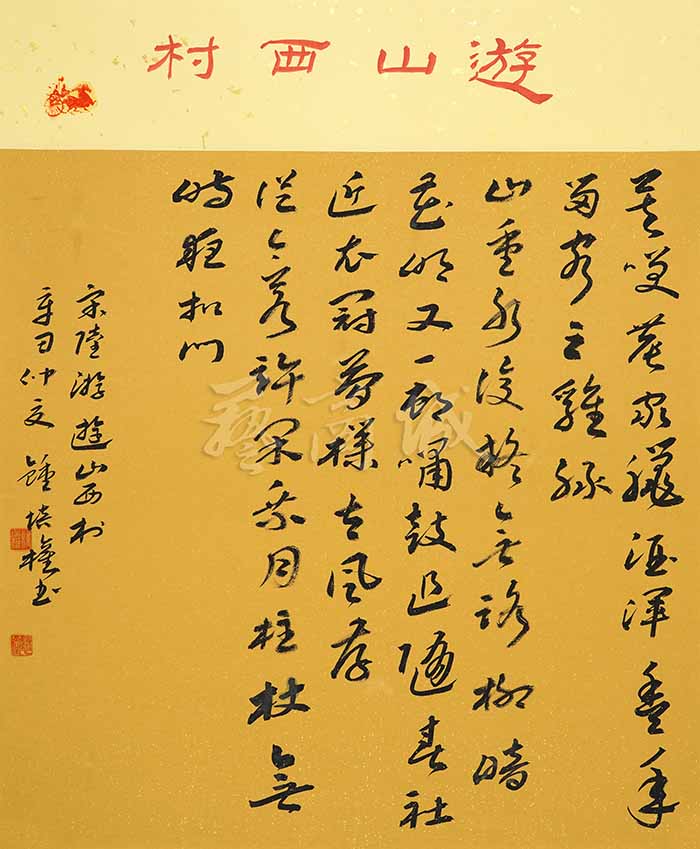 遊山西村
莫笑農家臘酒渾豐年
留客足雞豚
山重水復疑無路柳暗
花明又一邨簫鼓追隨春社
近衣冠簡樸古風存
從今若許閒乘月拄杖無
時夜扣門
宋陸游遊山西村
辛丑仲夏 鍾培權书